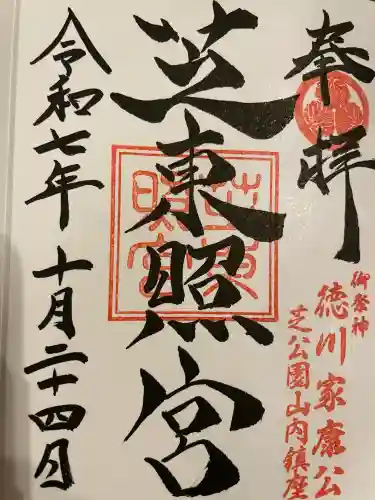 奉拝
御祭神
徳川家康公
芝公園山内鎮座
芝東照宮
令和七年十月二十四日